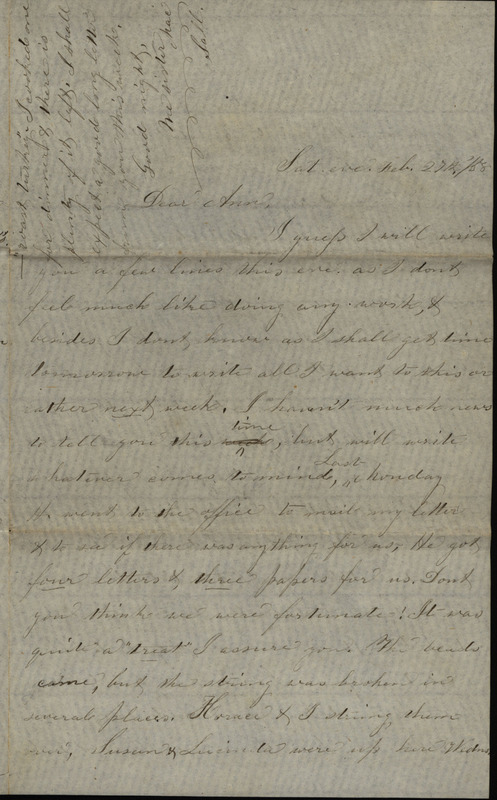 Sat. eve. Feb. 27th, /68
Dear Ann,
I guess I will write
you a few lines this eve. as I dont
feel much like doing any work, &
besides I dont know as I shall get time
tomorrow to write all I want to this or
rather next week. I haven't much news
to tell you this week time, but will write
whatever comes to mind, Last Monday
H. went to the office to mail my letter
& to see if there was anything for us. He got
four letters & three papers for us. Dont
you think we were fortunate! It was
quite a "treat" I assure you. The beads
came, but the string was broken in
several places. Horace & I string them
over, Susan & Lucinda were up here Wednes
roast turkey. I cooked one
for dinner & there is
plenty of it left. I shall
expect a good long letter
from you this week.
Good night,
sister
Sall.